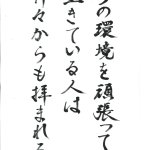 の環境を頑張って
生きている人は
神々からも拝まれる